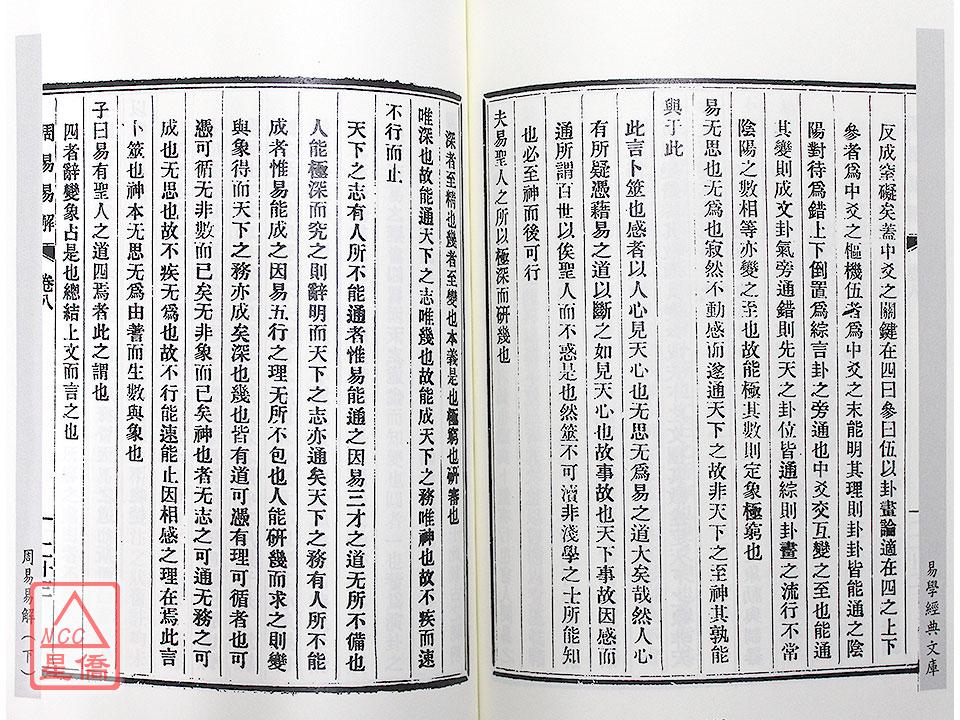 反成窒礙矣蓋中爻之關鍵在四曰參曰伍以卦畫論適在四之上下
參者為中爻之樞機伍者為中爻之末能明其理則卦卦皆能通之陰
陽對待為錯上下倒置為綜言卦之旁通也中爻交互變之至也能通
其變則成文卦氣旁通錯則先天之卦位皆通綜則卦畫之流行不常
陰陽之數相等亦變之至也故能極其數則定象極窮也
易无思也无為也寂然不動感而遂通天下之故非天下之至神其孰能
與于此
此言卜筮也感者以人心見天心也无思无為易之道大矣哉然人心
有所疑憑藉易之道以斷之如見天心也故事故也天下事故因感而
通所謂百世以俟聖人而不惑是也然筮不可瀆非淺學之士所能知
也必至神而後可行
夫易聖人之所以極深而研幾也
深者至精也幾者至變也本義是也極窮也研審也
唯深也故能通天下之志唯幾也故能成天下之務唯神也故不疾而速
不行而止
天下之志有人所不能通者惟易能通之因易三才之道无所不備也
人能極深而究之則辭明而天下之志亦通矣天下之務有人所不能
成者惟易能成之因易五行之理无所不包也人能研幾而求之則變
與象得而天下之務亦成矣深也幾也皆有道可憑有理可循者也
憑可循无非數而已矣无非象而已矣神也者无志之可通无務之可
成也无思也故不疾无為也故不行能速能止因相感之理在焉此言
卜筮也神本无思无為由蓍而生數與象也
子曰易有聖人之道四焉者此之謂也
四者辭變象占是也總結上文而言之也
周易易解
卷八
二十三
易學經典文庫
周易易解(下)
NCC
星僑